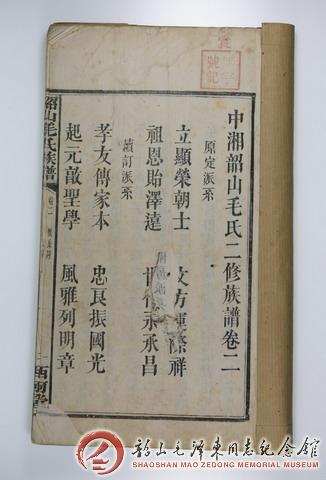 中湘韶山毛氏二修族譜卷二
原定派系
立顯榮朝士 文方運際祥
祖恩貽澤遠 世代永承昌
續訂派系
孝友傳家本 忠良振國光
起元敵聖學 風雅列明章
韶山毛氏族譜
卷二
西河堂
韶山毛澤東同志紀念館
SHAOSHAN MAO ZEDONG MEMORIAL MUSEUM